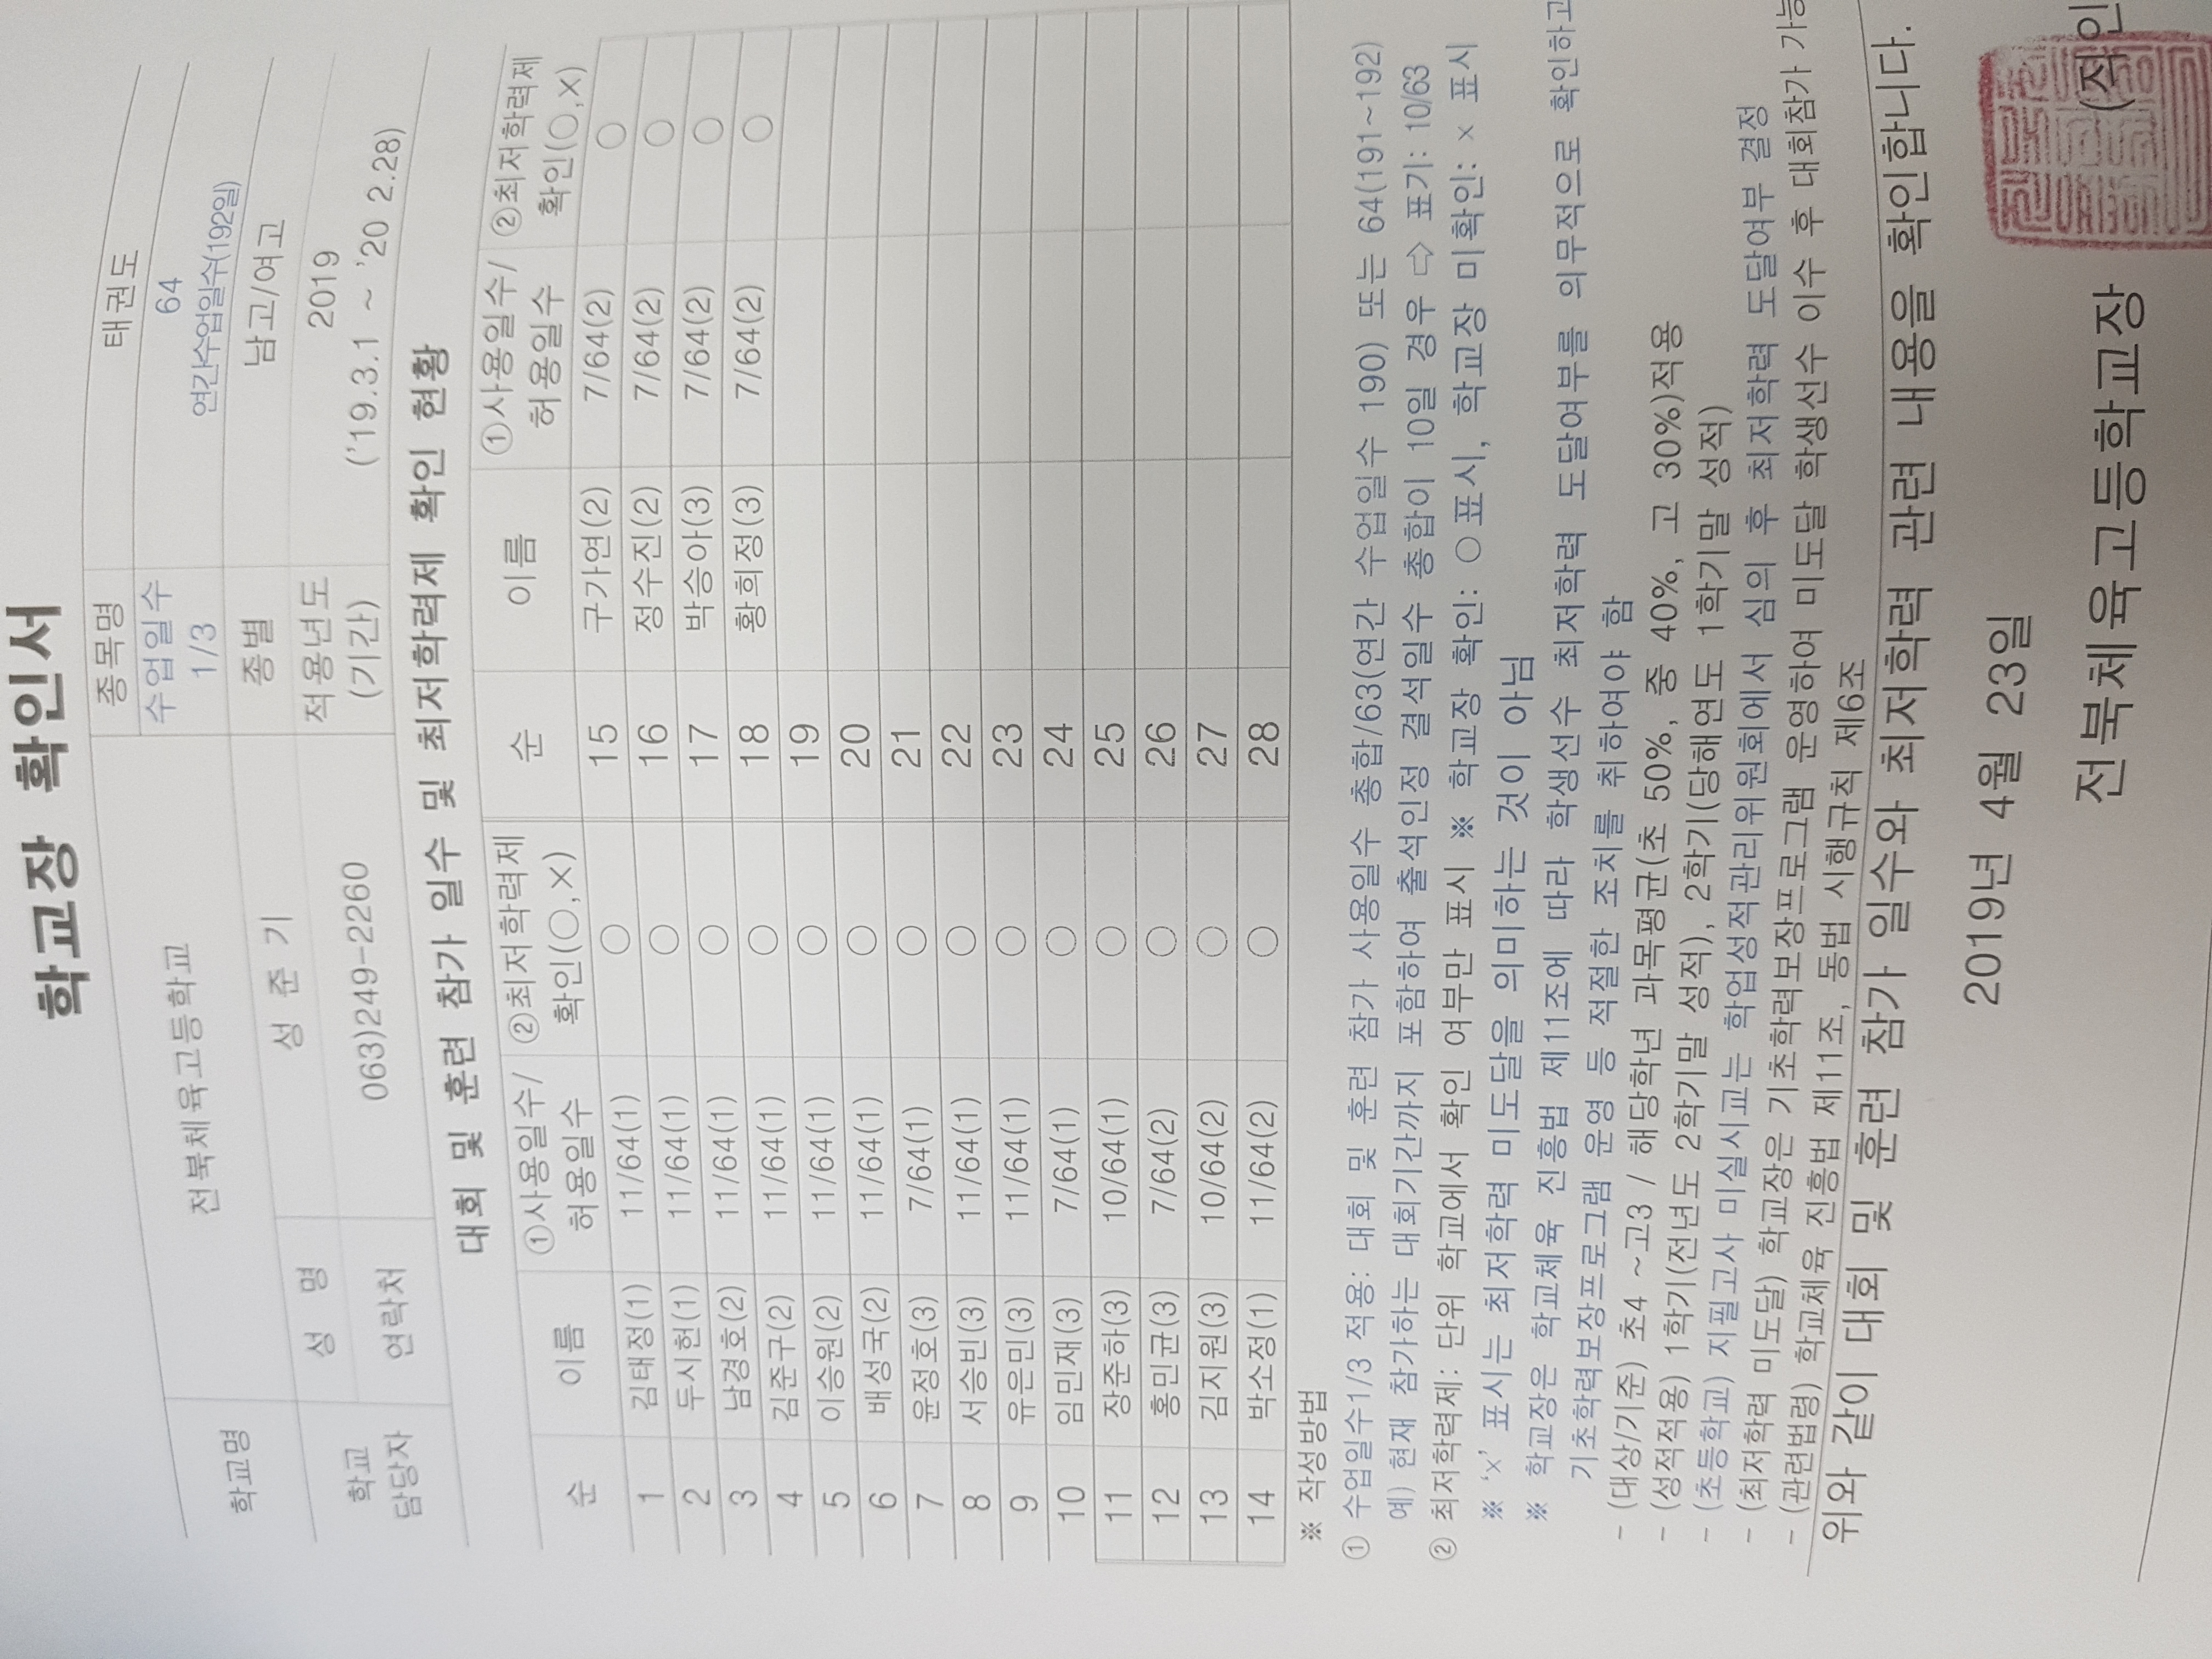 학교장 확인서
학교명 전북체육고등학교 종목명 태권도
수업일수 1/3 64
연간수업일수(192일)
학교 담당자 성 명 성 준 기 종별 남고/여고
연락처 063)249-2260 적용년도 (기간) 2019
('19.3.1 ~ '20 2.28)
대회 및 훈련 참가 일수 및 최저학력제 확인 현황
순 이름 ①사용일수/허용일수 ②최저학력제 확인(○,×) 순 이름 ①사용일수/허용일수 ②최저학력제 확인(○,×)
1 김태정(1) 11/64(1) ○ 15 구가연(2) 7/64(2) ○
2 두시헌(1) 11/64(1) ○ 16 정수진(2) 7/64(2) ○
3 남경호(2) 11/64(1) ○ 17 박승아(3) 7/64(2) ○
4 김준구(2) 11/64(1) ○ 18 황희정(3) 7/64(2) ○
5 이승원(2) 11/64(1) ○ 19
6 배성국(2) 11/64(1) ○ 20
7 윤정호(3) 7/64(1) ○ 21
8 서승빈(3) 11/64(1) ○ 22
9 유은민(3) 11/64(1) ○ 23
10 임민재(3) 7/64(1) ○ 24
11 장준하(3) 10/64(1) ○ 25
12 홍민균(3) 7/64(2) ○ 26
13 김지원(3) 10/64(2) ○ 27
14 박소정(1) 11/64(2) ○ 28
※ 작성방법
① 수업일수1/3 적용: 대회 및 훈련 참가 사용일수 총합/63(연간 수업일수 190) 또는 64(191~192)
예) 현재 참가하는 대회기간까지 포함하여 출석인정 결석일수 총합이 10일 경우 ⇨ 표기: 10/63
② 최저학력제: 단위 학교에서 확인 여부만 표시 ※ 학교장 확인: ○ 표시, 학교장 미확인: × 표시
※ '×' 표시는 최저학력 미도달을 의미하는 것이 아님
※ 학교장은 학교체육 진흥법 제11조에 따라 학생선수 최저학력 도달여부를 의무적으로 확인하고
기초학력보장프로그램 운영 등 적절한 조치를 취하여야 함
- (대상/기준) 초4 ~고3 / 해당학년 과목평균(초 50%, 중 40%, 고 30%)적용
- (성적적용) 1학기(전년도 2학기말 성적), 2학기(당해연도 1학기말 성적)
- (초등학교) 지필고사 미실시교는 학업성적관리위원회에서 심의 후 최저학력 도달여부 결정
- (최저학력 미도달) 학교장은 기초학력보장프로그램 운영하여 미도달 학생선수 이수 후 대회참가 가능
- (관련법령) 학교체육 진흥법 제11조, 동법 시행규칙 제6조
위와 같이 대회 및 훈련 참가 일수와 최저학력 관련 내용을 확인합니다.
2019년 4월 23일
전북체육고등학교장 (직인